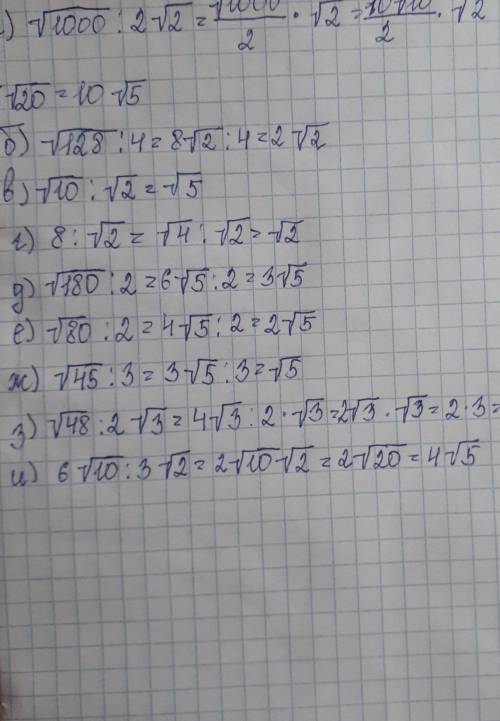 ) √1000 : 2√2 = √1000/2 · √2 = 10√10/2 · √2
√20 = 10√5
б) √128 : 4 = 8√2 : 4 = 2√2
в) √10 : √2 = √5
г) 8 : √2 = √4 : √2 = √2
д) √180 : 2 = 6√5 : 2 = 3√5
е) √80 : 2 = 4√5 : 2 = 2√5
ж) √45 : 3 = 3√5 : 3 = √5
з) √48 : 2√3 = 4√3 : 2 · √3 = 2√3 · √3 = 2 · 3 =
и) 6√10 : 3√2 = 2√10 √2 = 2√20 = 4√5